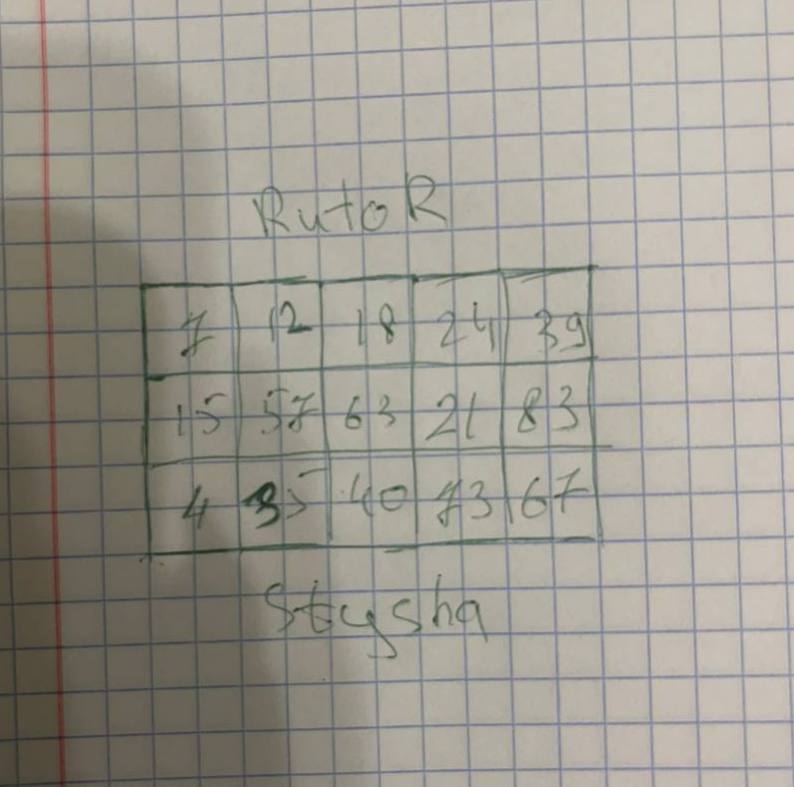 RutoR
7 12 18 24 39
15 57 63 21 83
4 35 40 73 67
Stysha